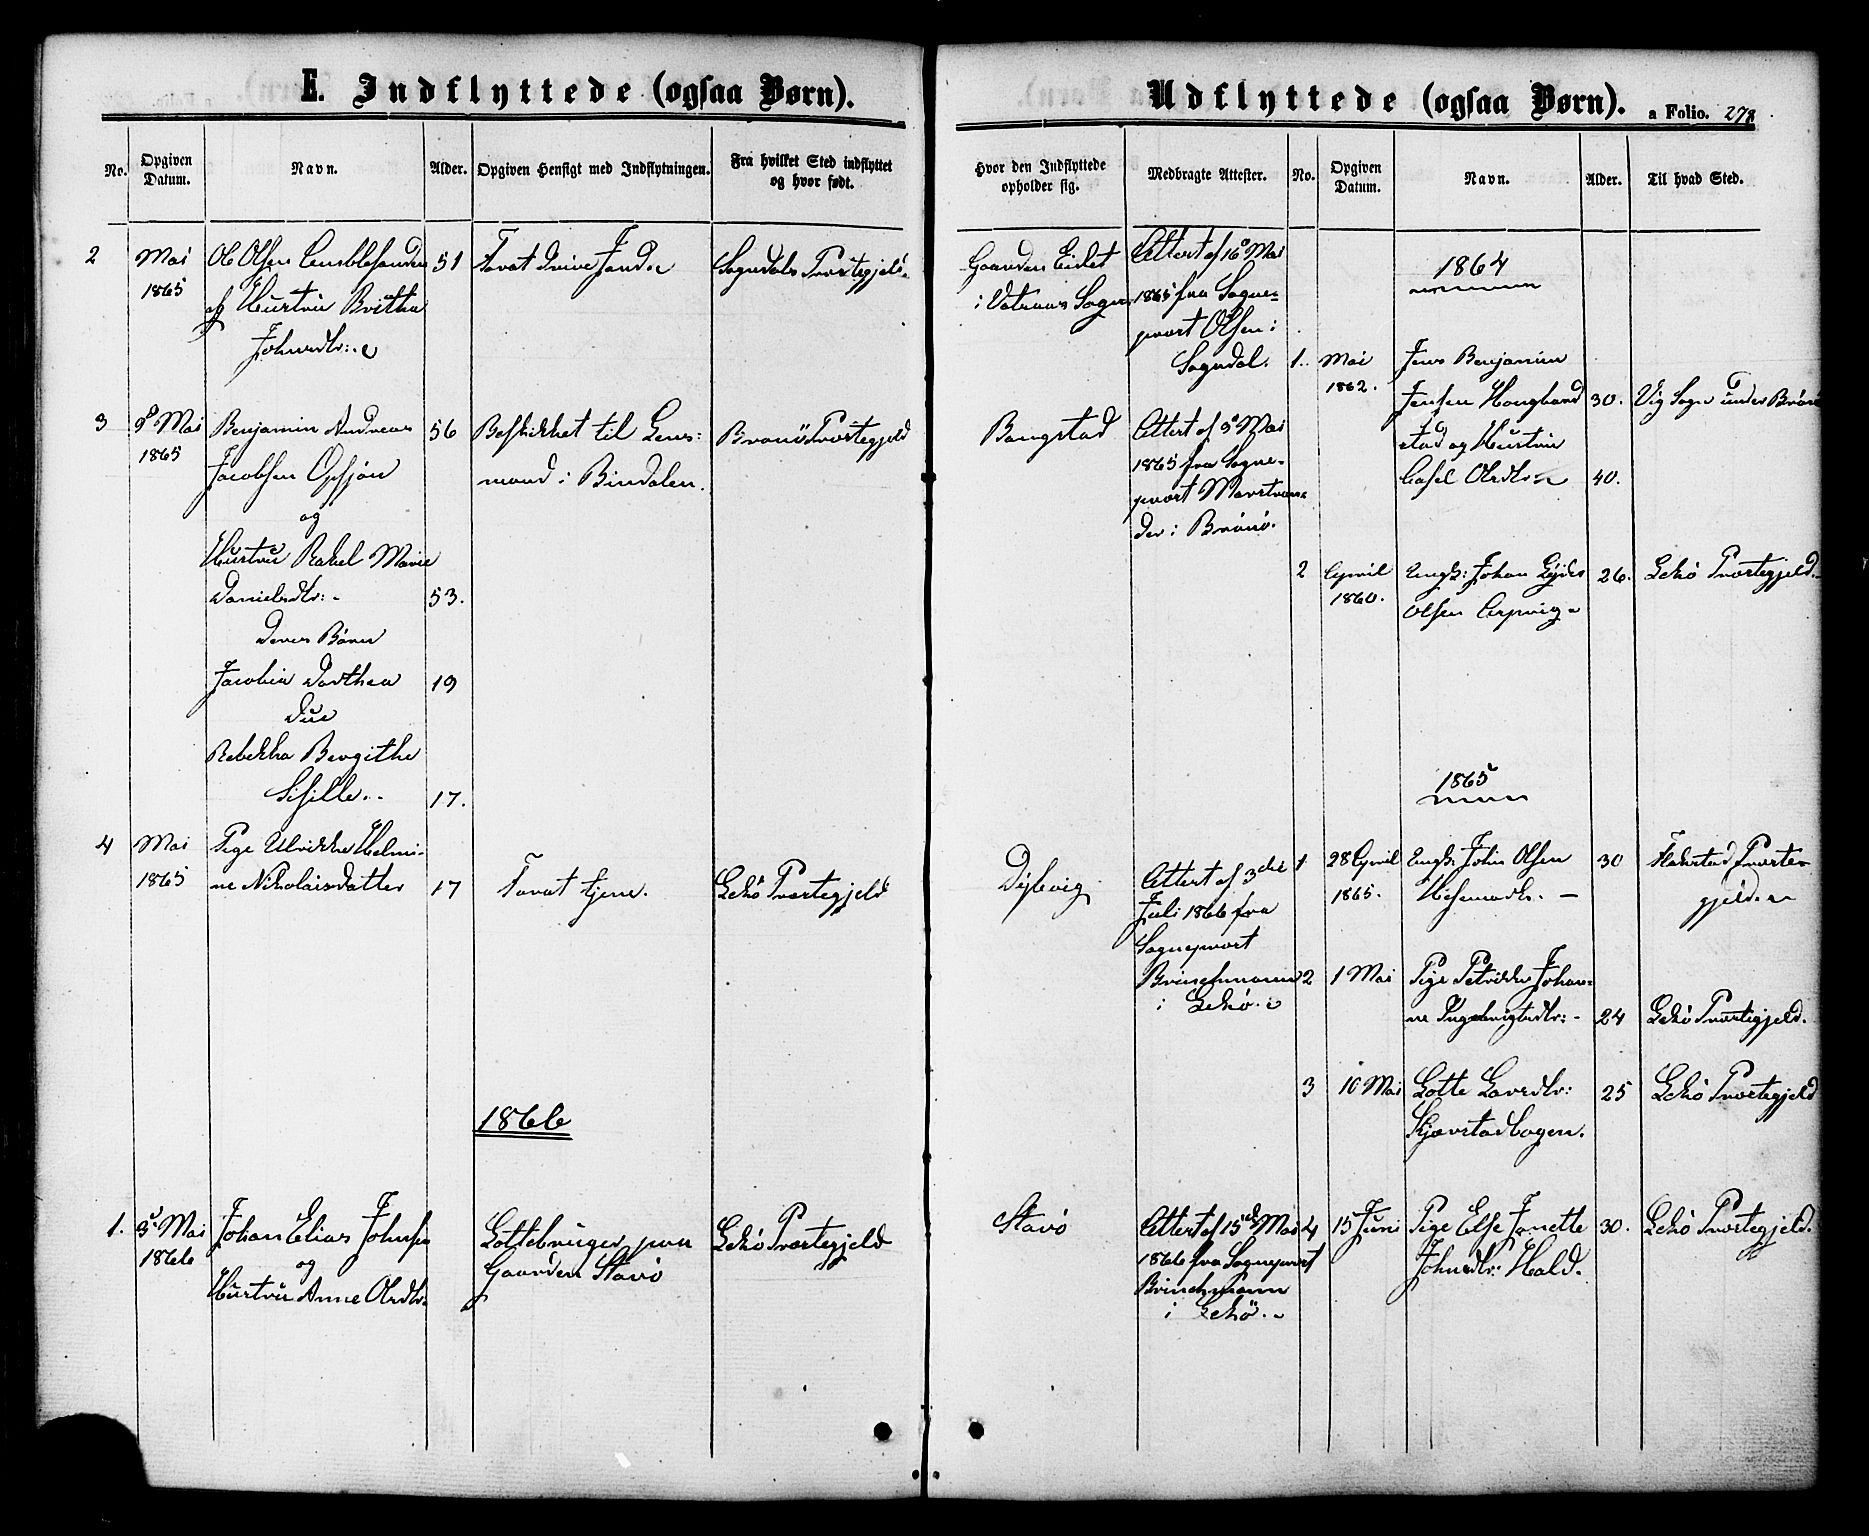 E. Indflyttede (ogsaa Børn).
No.
Opgiven
Datum.
Navn.
Alder.
Opgiven Hensigt med Indflytningen.
Fra hvilket Sted indflyttet
og hvor født.
2
Mai
1865
Ole Olsen
og Hustru Britha
Johnsdtr:
51
For at drive Jord
Sogndals Præstegjeld
3
8 Mai
1865
Benjamin Andreas
Jacobsen Opsjøn
og
Hustru Rakel Marie
Danielsdtr:
Deres Børn
Jacobia Dorthea
Due
Rebekka Bergithe
Sisille
56
53.
19
17.
Beskikket til Lens:
mand i Bindalen.
Brønö Præstegjeld
4
Mai
1865
Pige Ulrikke Helmi-
ne Nikolaisdatter
17
For at tjene.
Lekö Præstegjeld
1866
1.
3 Mai
1866
Johan Elias Johnsen
og
Hustru Anne Olsdtr.
Lottebruger paa
Gaarden Stavö
Lekö Præstegjeld
Udflyttede (ogsaa Børn).
a Folio. 278
Hvor den Indflyttede
opholder sig.
Medbragte Attester.
No.
Opgiven
Datum.
Navn.
Alder.
Til hvad Sted.
Gaarden Eidet
i Vatraas Sogn
Attest af 16 Mai
1865 fra Sogne-
præst Olsen i
Sogndal.
Bangstad
Attest af 5 Mai
1865 fra Sogne-
præst Marstran-
der i Brönö.
Dybvig
Attest af 3die
Juli 1866 fra
Sognepræst
Brinchmann
i Lekö.
Stavö
Attest af 15de Mai
1866 fra Sognepræst
Brinchmann
i Lekö.
1864
1.
Mai
1862.
Jens Benjamin
Jensen
stad og Hustru
Olsdtr
30.
40.
Vig Sogn under Brönö
2
April
1860.
Ungk: Johan
Olsen
26.
Lekö Præstegjeld.
1865
1
28 April
1865.
Ungk: John Olsen
30
Præste-
gjeld.
2
1 Mai
Pige Petrikke Johan-
ne Ingebrigtsdtr:
24
Lekö Præstegjeld.
3
10 Mai
Lotte Larsdtr:
Kjærstadbogen.
25
Lekö Præstegjeld
4
15 Juni
Pige Else Janette
Johnsdtr: Hald.
30.
Lekö Præstegjeld.